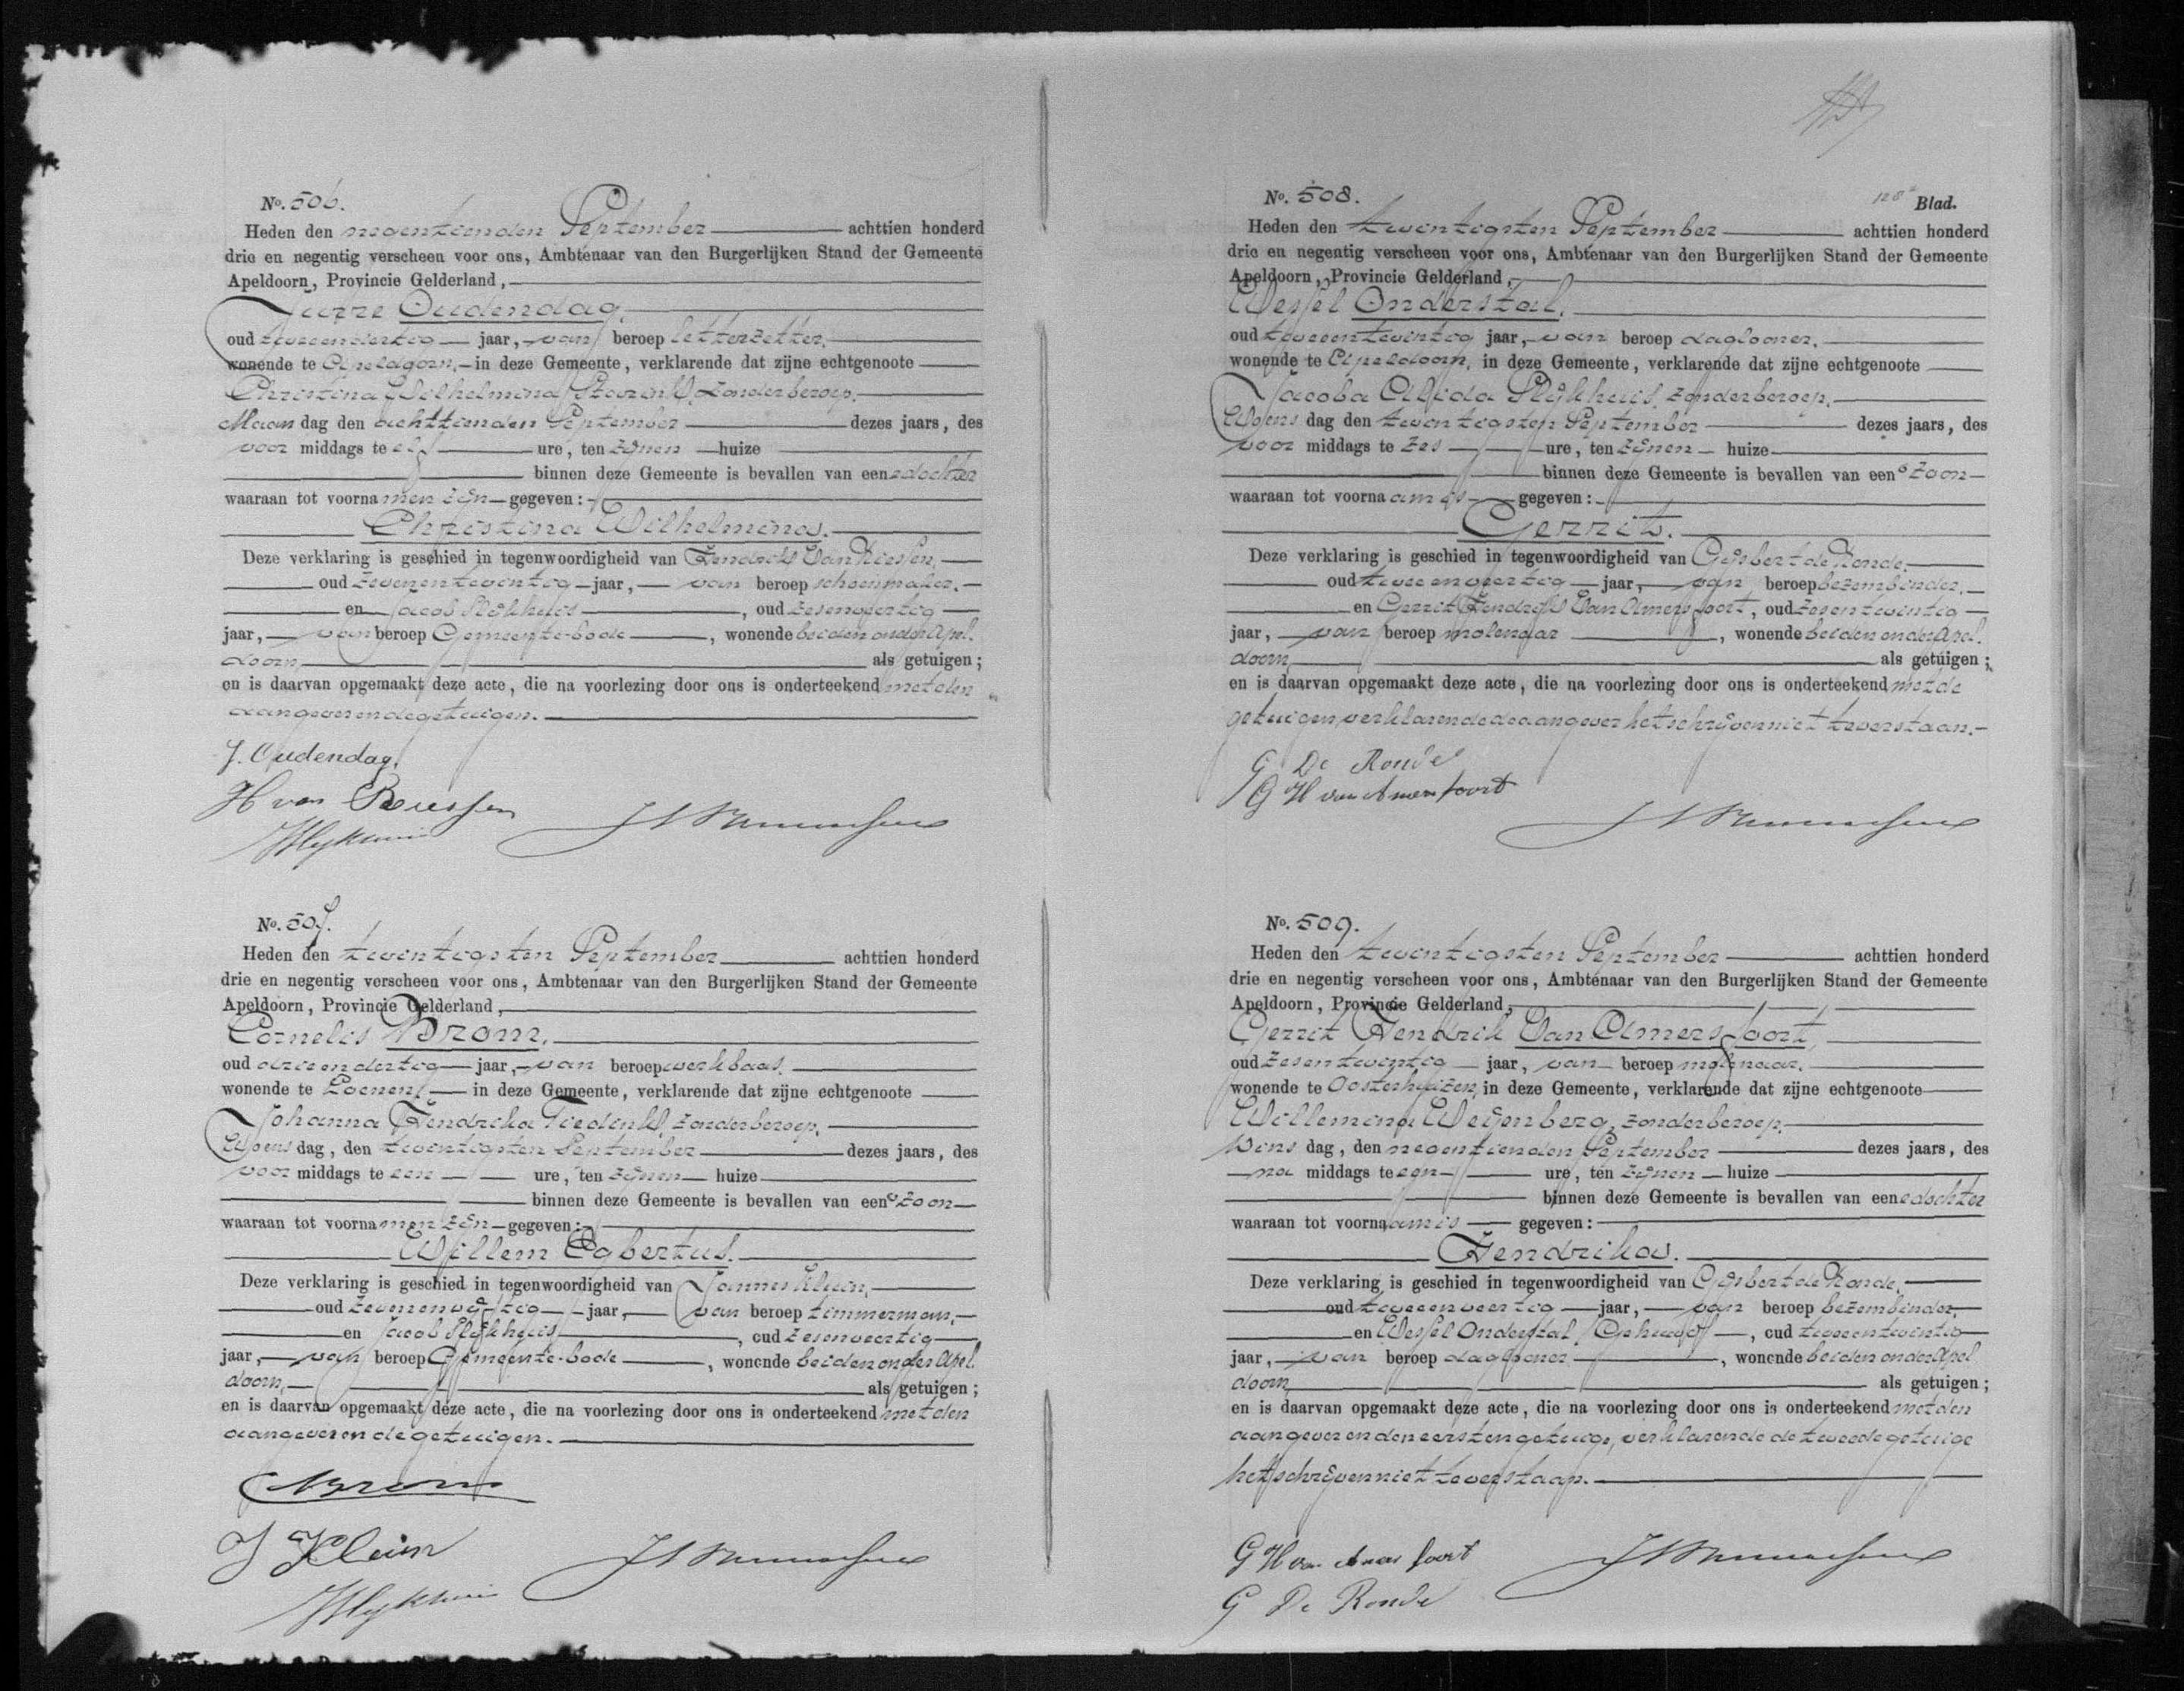 No. 506.
Heden den negentienden September achttien honderd
drie en negentig verscheen voor ons, Ambtenaar van den Burgerlijken Stand der Gemeente
Apeldoorn, Provincie Gelderland,
Oudendag,
oud tweeendertig jaar, van beroep letterzetter,
wonende te Apeldoorn, in deze Gemeente, verklarende dat zijne echtgenoote
Christina Wilhelmina zonder beroep,
Maandag den achttienden September dezes jaars, des
voor middags te elf ure, ten zijnen huize
binnen deze Gemeente is bevallen van eene dochter
waaraan tot voornamen zijn gegeven:
Christina Wilhelmina.
Deze verklaring is geschied in tegenwoordigheid van Hendrik Van
oud zevenentwintig jaar, van beroep schoenmaker,
en Jacob Slijkhuis, oud zesenveertig
jaar, van beroep Gemeente-bode, wonende beiden onder Apel-
doorn, als getuigen;
en is daarvan opgemaakt deze acte, die na voorlezing door ons is onderteekend met den
aangever en de getuigen.
J. Oudendag,
H van
No. 507.
Heden den twintigsten September achttien honderd
drie en negentig verscheen voor ons, Ambtenaar van den Burgerlijken Stand der Gemeente
Apeldoorn, Provincie Gelderland,
Cornelis Brom,
oud drieendertig jaar, van beroep werkbaas,
wonende te Loenen, in deze Gemeente, verklarende dat zijne echtgenoote
Johanna Hendrika Tiedink, zonder beroep,
Woensdag, den twintigsten September dezes jaars, des
voor middags te een ure, ten zijnen huize
binnen deze Gemeente is bevallen van een zoon
waaraan tot voornamen zijn gegeven:
Willem Egbertus.
Deze verklaring is geschied in tegenwoordigheid van Jannes Klein,
oud zevenenvijftig jaar, van beroep timmerman,
en Jacob Slijkhuis, oud zesenveertig
jaar, van beroep Gemeente-bode, wonende beiden onder Apel-
doorn, als getuigen;
en is daarvan opgemaakt deze acte, die na voorlezing door ons is onderteekend met den
aangever en de getuigen.
CBrom
J Klein
128e Blad.
No. 508.
Heden den twintigsten September achttien honderd
drie en negentig verscheen voor ons, Ambtenaar van den Burgerlijken Stand der Gemeente
Apeldoorn, Provincie Gelderland,
Wessel Onderstal,
oud tweeentwintig jaar, van beroep daglooner,
wonende te Apeldoorn, in deze Gemeente, verklarende dat zijne echtgenoote
Jacoba Alida Slijkhuis, zonder beroep,
Woensdag den twintigsten September dezes jaars, des
voor middags te zes ure, ten zijnen huize
binnen deze Gemeente is bevallen van een zoon
waaraan tot voornaam is gegeven:
Gerrit.
Deze verklaring is geschied in tegenwoordigheid van Gijsbert de Ronde,
oud tweeenveertig jaar, van beroep bezembinder,
en Gerrit Hendrik Van Amersfoort, oud zesentwintig
jaar, van beroep molenaar, wonende beiden onder Apel-
doorn, als getuigen;
en is daarvan opgemaakt deze acte, die na voorlezing door ons is onderteekend met de
getuigen, verklarende de aangever het schrijven niet te verstaan.
G De Ronde
G H van Amersfoort
No. 509.
Heden den twintigsten September achttien honderd
drie en negentig verscheen voor ons, Ambtenaar van den Burgerlijken Stand der Gemeente
Apeldoorn, Provincie Gelderland,
Gerrit Hendrik Van Amersfoort,
oud zesentwintig jaar, van beroep molenaar,
wonende te Oosterhuizen, in deze Gemeente, verklarende dat zijne echtgenoote
Willemina Weijenberg, zonder beroep,
Dinsdag, den negentienden September dezes jaars, des
na middags te een ure, ten zijnen huize
binnen deze Gemeente is bevallen van eene dochter
waaraan tot voornaam is gegeven:
Hendrika.
Deze verklaring is geschied in tegenwoordigheid van Gijsbert de Ronde,
oud tweeenveertig jaar, van beroep bezembinder,
en Wessel Onderstal, oud tweeentwintig
jaar, van beroep daglooner, wonende beiden onder Apel-
doorn, als getuigen;
en is daarvan opgemaakt deze acte, die na voorlezing door ons is onderteekend met den
aangever en den eersten getuige, verklarende de tweede getuige
het schrijven niet te verstaan.
G H van Amersfoort
G De Ronde